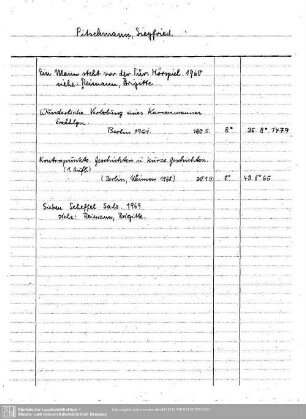 Pitschmann, Siegfried
Ein Mann steht vor der Tür. Hörspiel. 1960
siehe: Reimann, Brigitte
Wunderliche Verlobung eines Karrenmannes
Erzählgn.
Berlin 1961. 180 S. 8° 35. 8° 7479
Kontrapunkte. Geschichten u. kurze Geschichten.
(1. Aufl.)
(Berlin, Weimar 1968) 8° 48. 8° 65
Sieben Scheffel Salz. 1960
siehe: Reimann, Brigitte.
Sächsische Landesbibliothek –
Staats- und Universitätsbibliothek Dresden